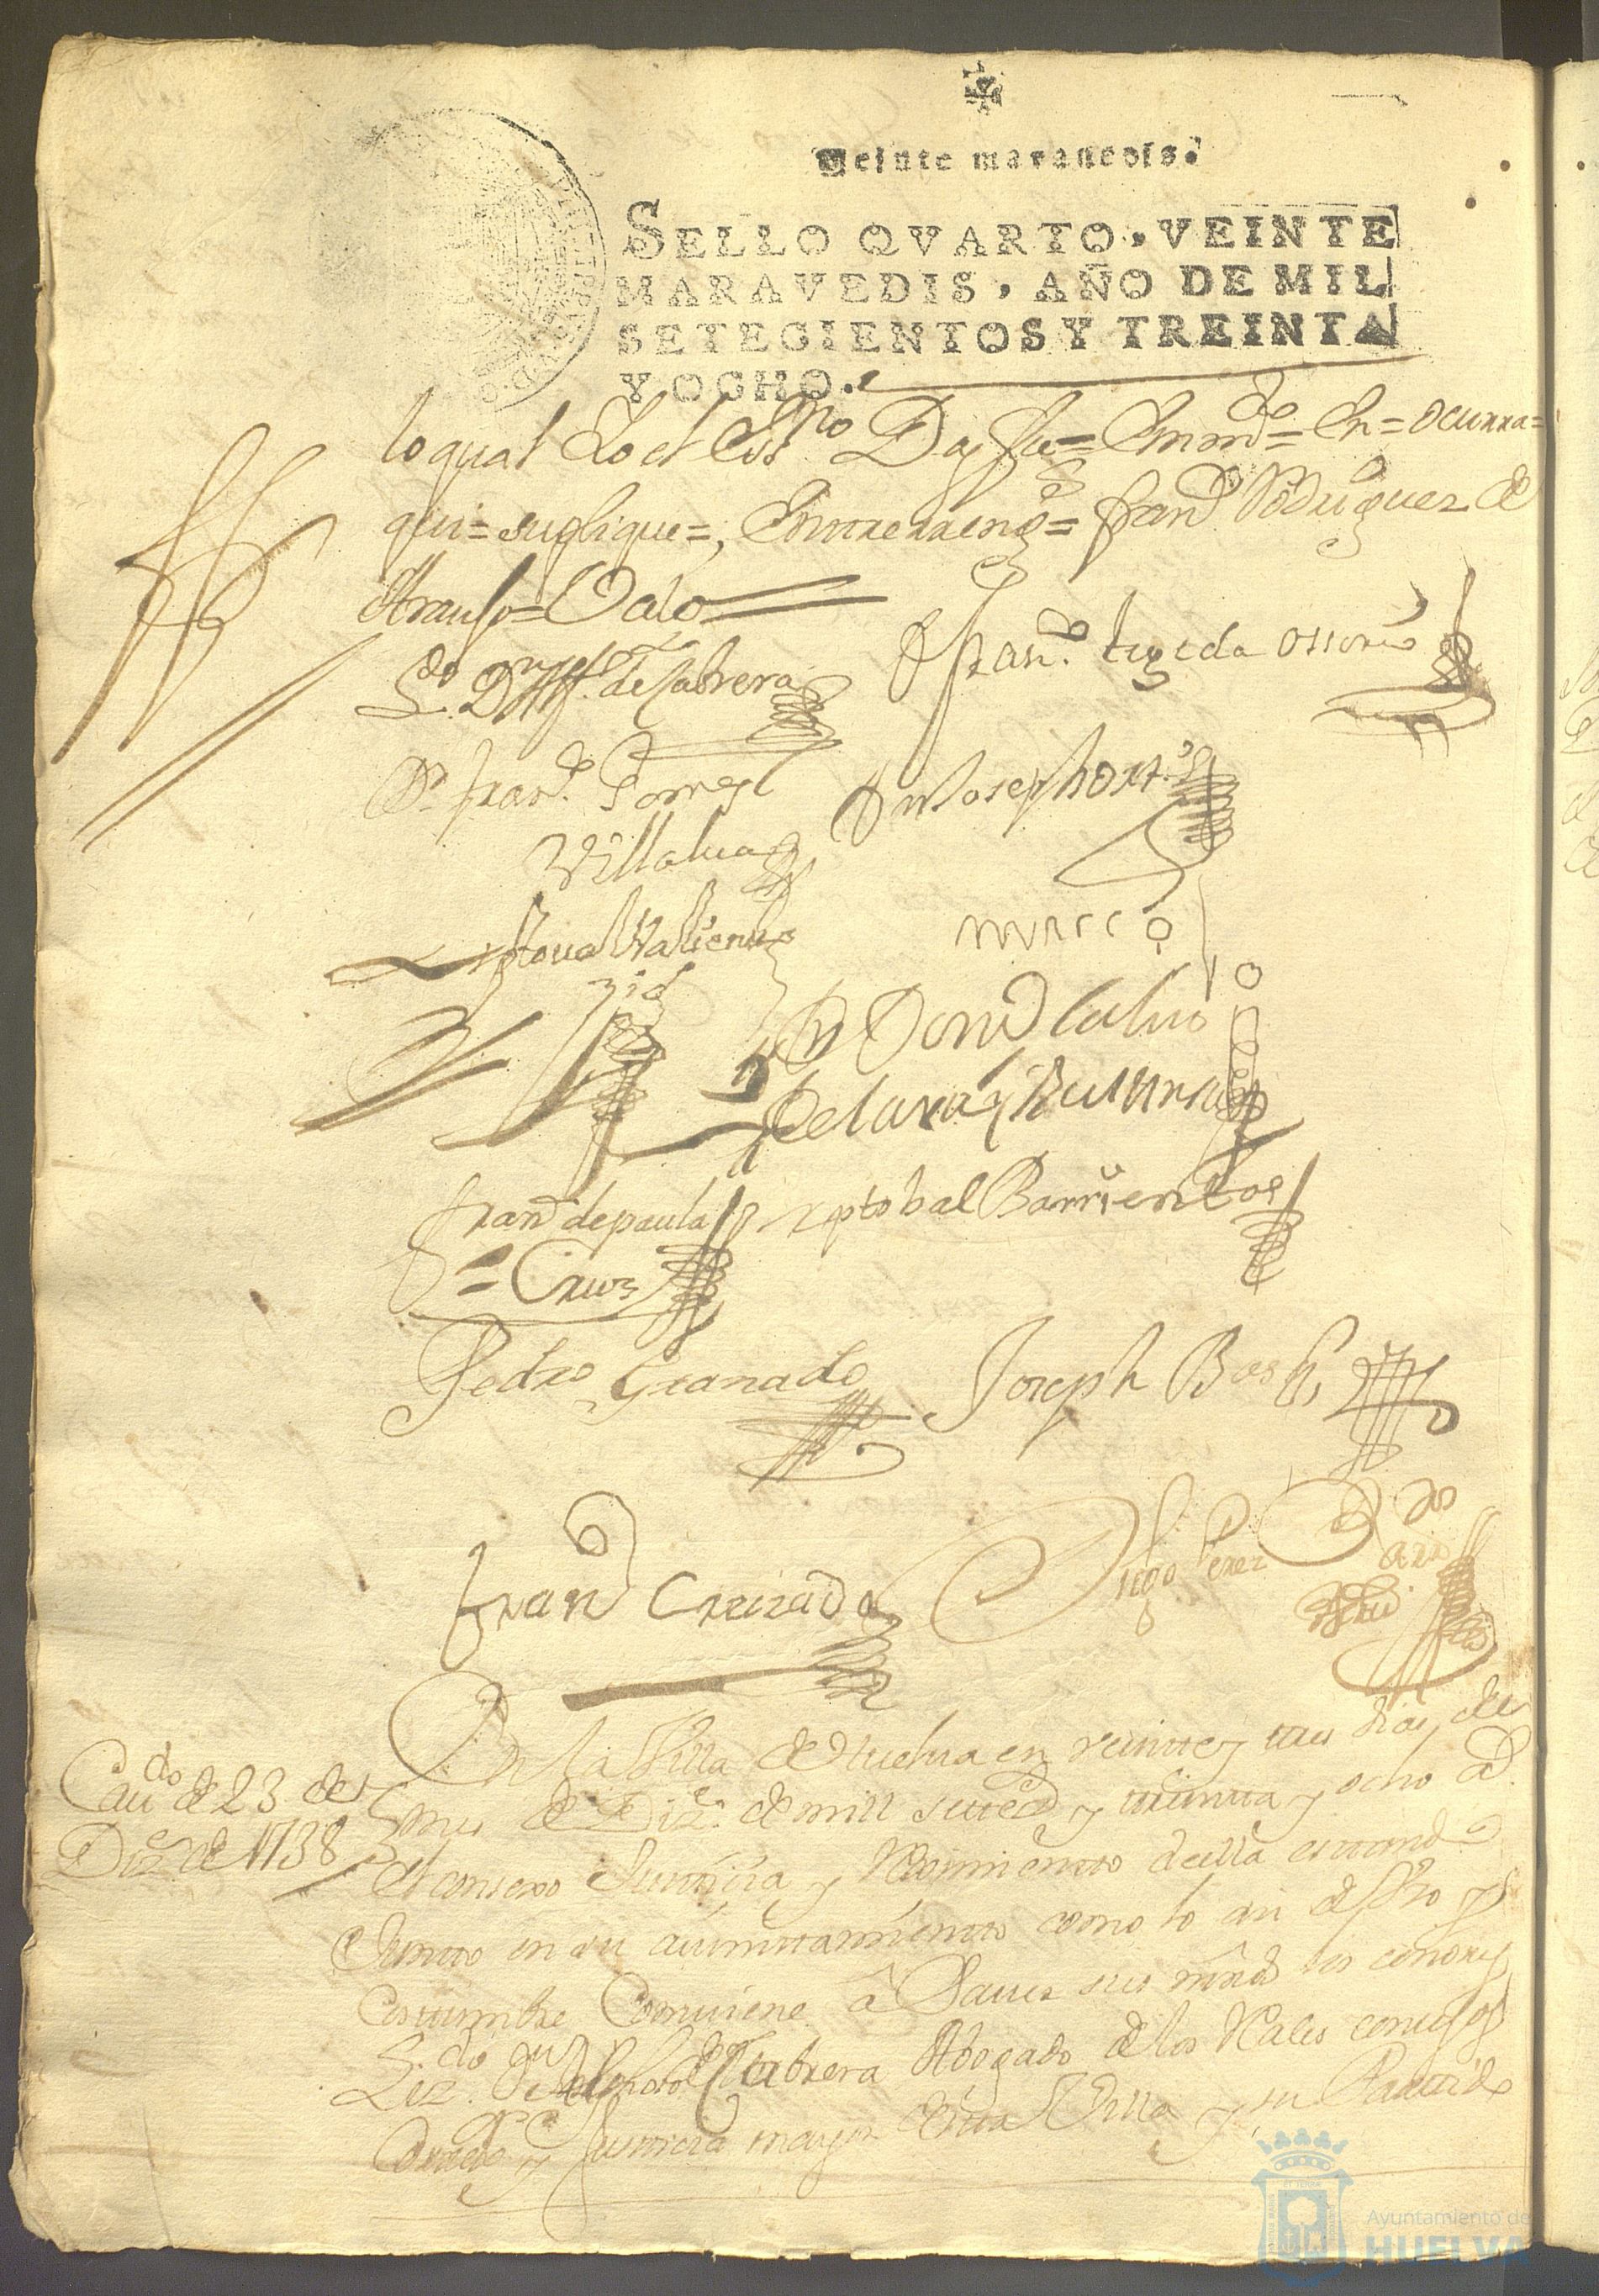 Veinte maravedis.
SELLO QVARTO, VEINTE
MARAVEDIS, AÑO DE MIL
SETECIENTOS Y TREINTA
Y OCHO.
lo qual Yo el Ess.no Doy fee = Emm.do = En = ocurra =
qui = suplique =, Entrerreng.o = Fran.co Rodriguez de
Araujo = Vale
L.do D.n Alf.o de Cabrera
Fran.co Texeda Ossorio
D.n Fran.co Torres
Villalua
D.n Joseph Ort.z
Xptoval Valiente
D.n Dom.o Calvo
de lara y
Fran.co de paula
Cruz
Xptobal Barrientos
Pedro Granado
Joseph Bos
Fran.co Cruzado
Diego Perez
Cau.do de 23 de
Diz.e de 1738
En la Villa de Huelva en veinte y tres dias del
mes de Diz.e de mill setec.s y treinta y ocho a.s
el consexo Justicia y Reximiento de ella estand.o
Junto en su aiuntamiento como lo an de Uso y
Costumbre Combiene â Saver sus mrd.s los señores
Liz.do D.n Alphonso de Cabrera Abogado de los R.ales consejos
Correg.or y Justicia mayor de esta Villa y su Partido
Ayuntamiento de
HUELVA